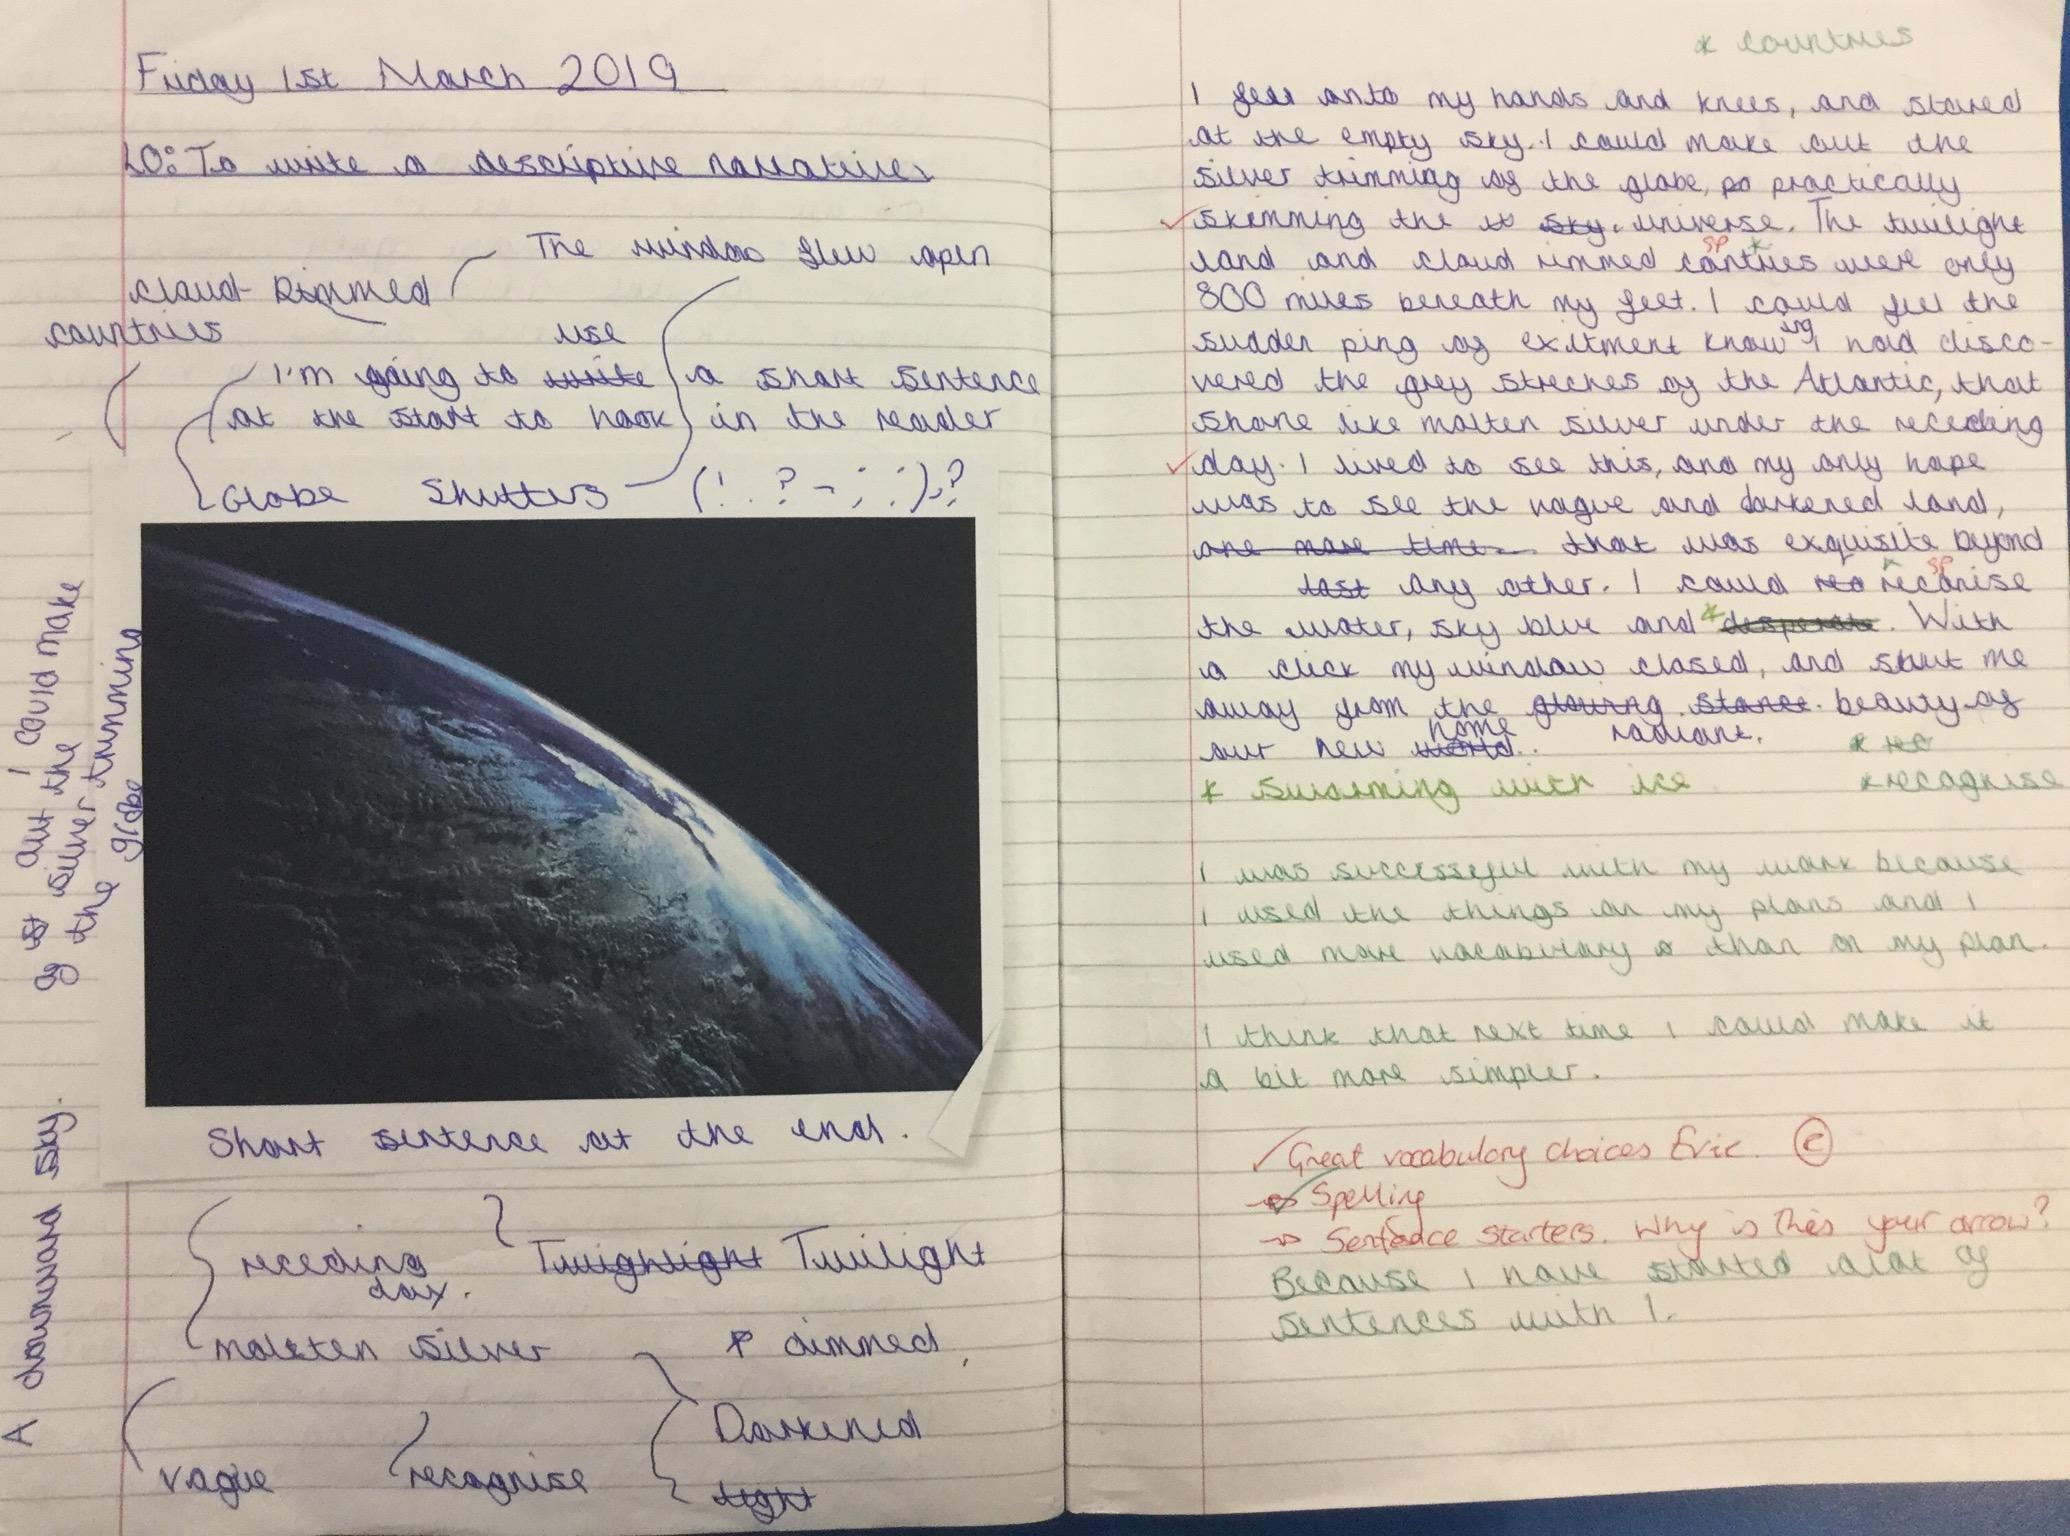 Friday 1st March 2019
LO: To write a descriptive narrative.
The window flew open
cloud Rimmed
countries
use
I'm going to write a short sentence
at the start to hook in the reader
Globe Shutters (! . ? - ; : ) , ?
I could make
out the
of st silver trimming
the globe
A downward sky.
Short sentence at the end.
receding
day.
Twighlight Twilight
moleten silver
dimmed
Darkened
vague recognise
light
* countries
I fell onto my hands and knees, and stared
at the empty sky. I could make out the
silver trimming of the globe, po practically
skimming the it sky. universe. The twilight
sp *
land and cloud rimmed contries were only
800 miles beneath my feet. I could feel the
sudden ping of exitment knowing I had disco-
vered the grey streches of the Atlantic, that
shone like molten silver under the receeding
day. I lived to see this, and my only hope
was to see the vague and darkened land,
one more time. that was exquisite beyond
sp
last any other. I could reo reconise
the water, sky blue and * desperate. With
a click my window closed, and shut me
away from the glowing stance. beauty of
home
our new world. radiant.
* rec
* swarming with ice
* recognise
I was successful with my work because
I used the things on my plans and I
used more vocabulary o than on my plan.
I think that next time I could make it
a bit more simpler.
Great vocabulary choices Eric. e
Spelling
Sentence starters. Why is this your arrow?
Because I have started alot of
sentences with I.